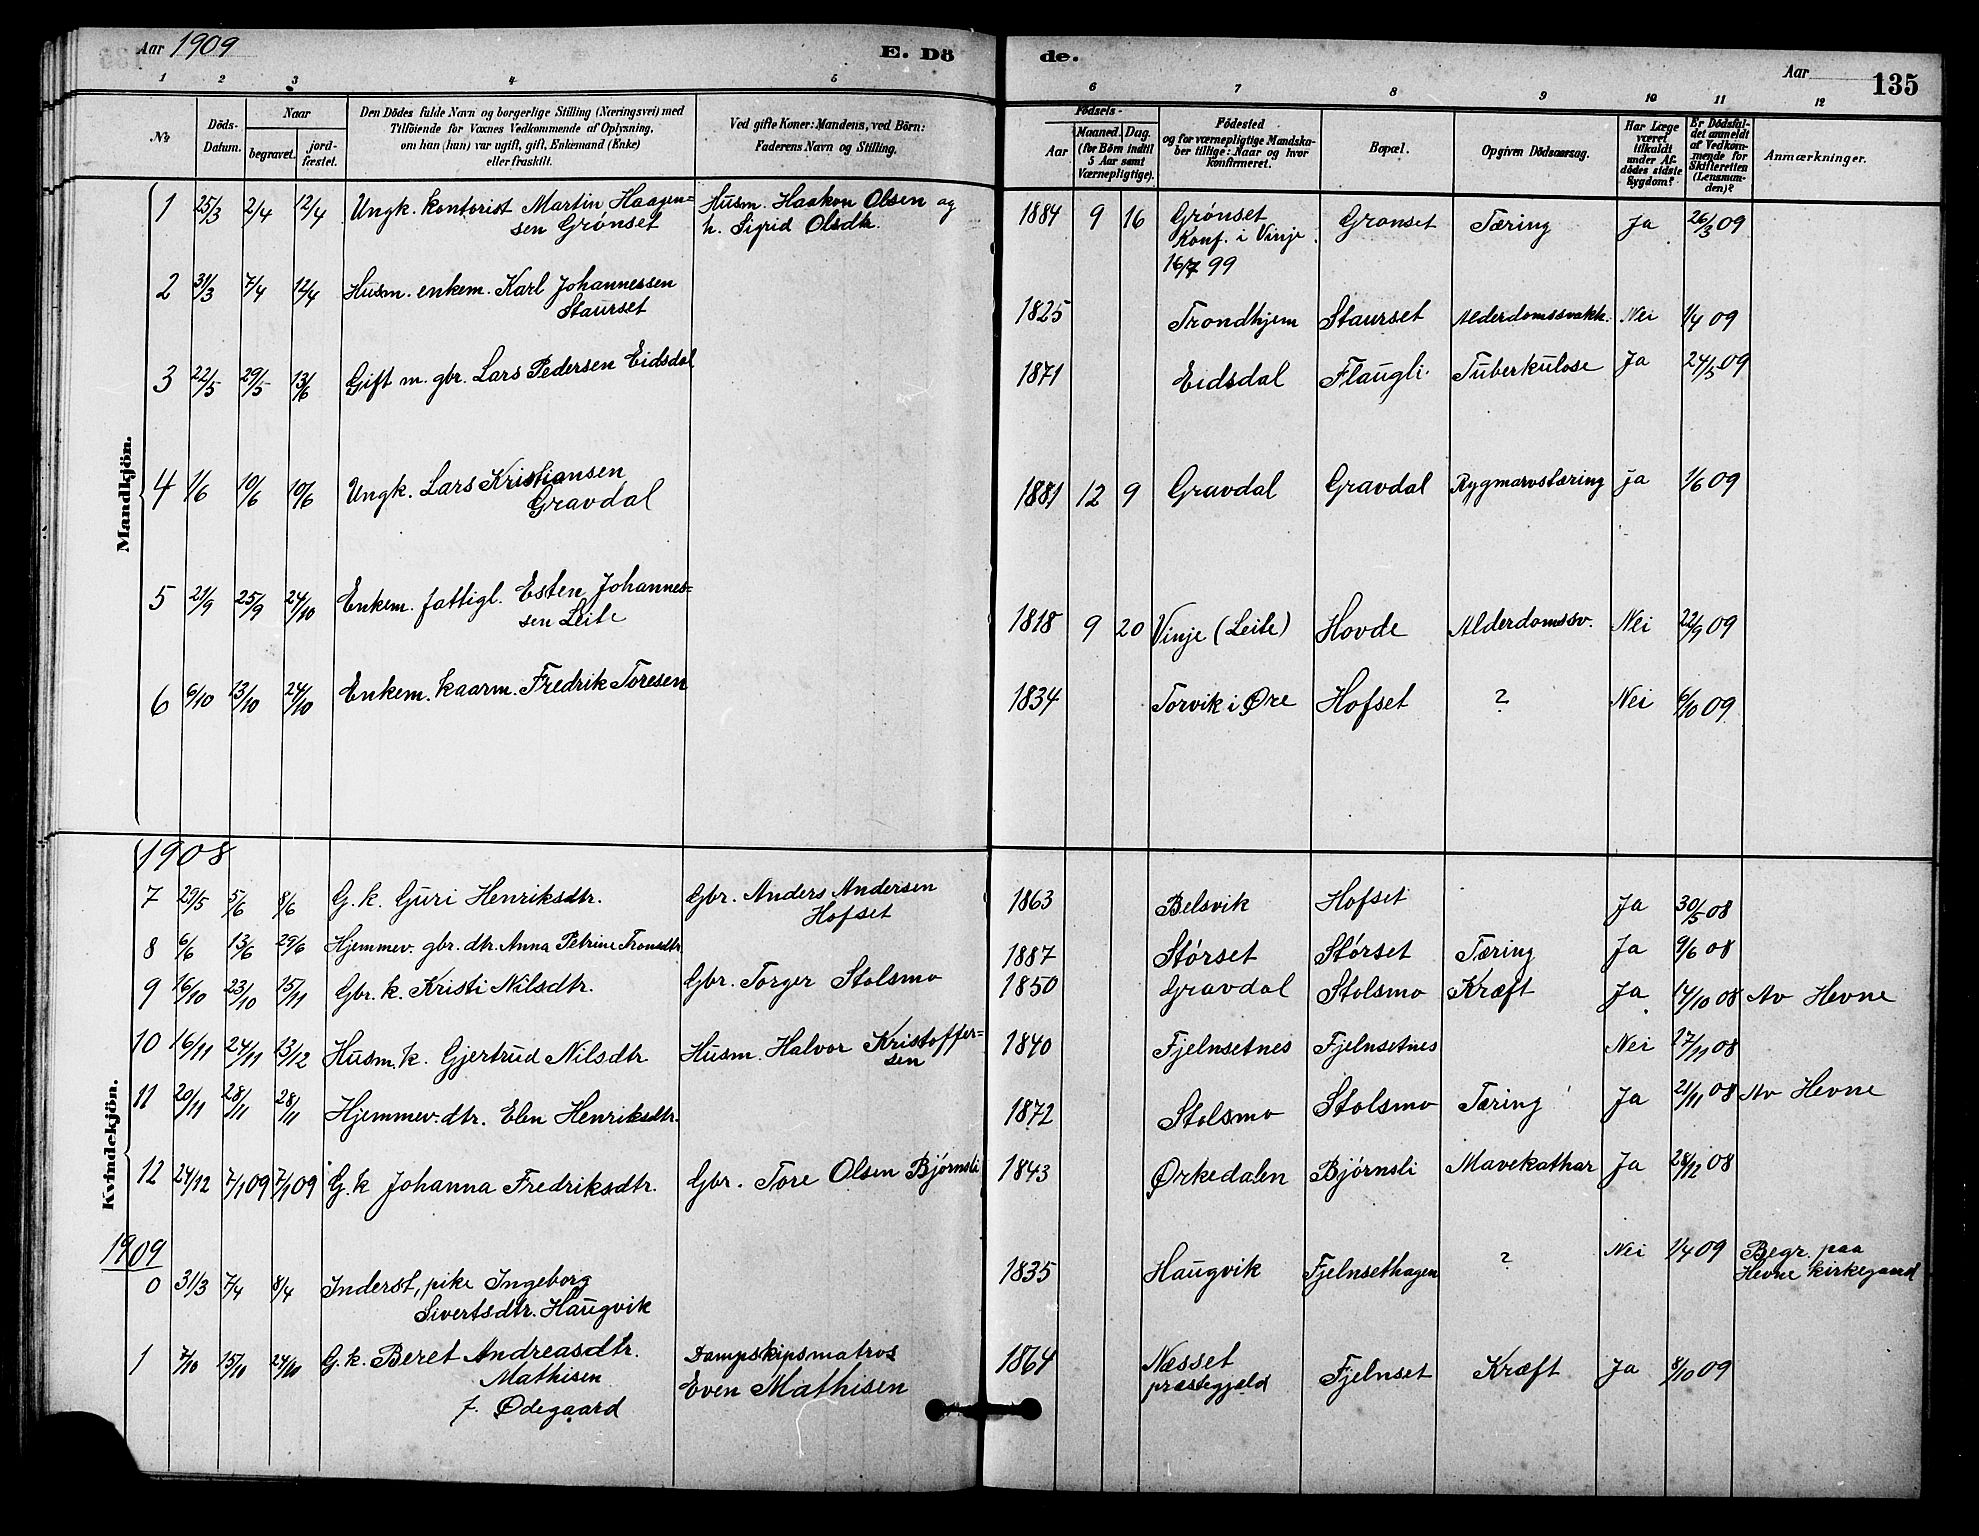 Aar 1909
E. Dö
de.
Aar
135
1 2 3 4 5
6 7 8 9 10 11 12
No
Döds-
Datum.
Naar
begravet.
jord-
fæstet.
Den Dödes fulde Navn og borgerlige Stilling (Næringsvei) med
Tilföiende for Voxnes Vedkommende af Oplysning,
om han (hun) var ugift, gift, Enkemand (Enke)
eller fraskilt.
Ved gifte Koner: Mandens, ved Börn:
Faderens Navn og Stilling.
Födsels-
Aar
Maaned. Dag.
(for Börn indtil
5 Aar samt
Værnepligtige).
Födested
og for værnepligtige Mandska-
ber tillige: Naar og hvor
konfirmeret.
Bopæl.
Opgiven Dödsaarsag.
Har Læge
været
tilkaldt
under Af-
dödes sidste
Sygdom?
Er Dödsfal-
det anmeldt
af Vedkom-
mende for
Skifteretten
(Lensman-
den)?
Anmærkninger.
Mandkjön.
1 25/3 2/4 12/4 Ungk. kontorist Martin Haagen- Husm. Haakon Olsen og 1884 9 16 Grønset Grønset Tæring Ja 26/3 09
sen Grønset h. Sigrid Olsdtr. Konf. i Vinje
16/7 99
2 31/3 7/4 12/4 Husm. enkem. Karl Johannessen
Staurset 1825 Trondhjem Staurset Alderdomssvakh. Nei 1/4 09
3 22/5 29/5 13/6 Gift m. gbr. Lars Pedersen Eidsdal 1871 Eidsdal Flaugli Tuberkulose Ja 24/5 09
4 1/6 10/6 10/6 Ungk. Lars Kristiansen 1881 12 9 Gravdal Gravdal Rygmarvstæring ja 1/6 09
Gravdal
5 21/9 25/9 24/10 Enkem. fattigl. Esten Johannes-
sen Leite 1818 9 20 Vinje (Leite) Hovde Alderdomssv. Nei 22/9 09
6 6/10 13/10 24/10 Enkem. kaarm. Fredrik Toresen 1834 Torvik i Øre Hofset ? Nei 6/10 09
Kvindekjön.
1908
7 29/5 5/6 8/6 G. k. Guri Henriksdtr. Gbr. Anders Andersen 1863 Belsvik Hofset Ja 30/5 08
Hofset
8 6/6 13/6 29/6 Hjemmev. gbr. dtr. Anna Petrine Tronsdtr. 1887 Størset Størset Tæring Ja 9/6 08
9 16/10 23/10 15/11 Gbr. k. Kristi Nilsdtr. Gbr. Torger Stolsmo 1850 Gravdal Stolsmo Kræft Ja 17/10 08 Av Hevne
10 16/11 24/11 13/12 Husm. k. Gjertrud Nilsdtr Husm. Halvor Kristoffer- 1840 Fjelnsetnes Fjelnsetnes Nei 17/11 08
sen
11 20/11 28/11 28/11 Hjemmev. dtr. Elen Henriksdtr. 1872 Stolsmo Stolsmo Tæring Ja 21/11 08 Av Hevne
12 24/12 7/1 09 7/1 09 G. k Johanna Fredriksdtr. Gbr. Tore Olsen Bjørnsli 1843 Ørkedalen Bjørnsli Mavekathar Ja 28/12 08
1909
0 31/3 7/4 8/4 Inderst, pike Ingeborg 1835 Haugvik Fjelnsethagen ? Nei 1/4 09 Begr. paa
Sivertsdtr. Haugvik Hevne kirkegaard
1 7/10 15/10 24/10 G. k. Beret Andreasdtr. Dampskipsmatros 1864 Næsset Fjelnset Kræft Ja 8/10 09
Mathisen Even Mathisen præstegjæld
f. Ødegaard